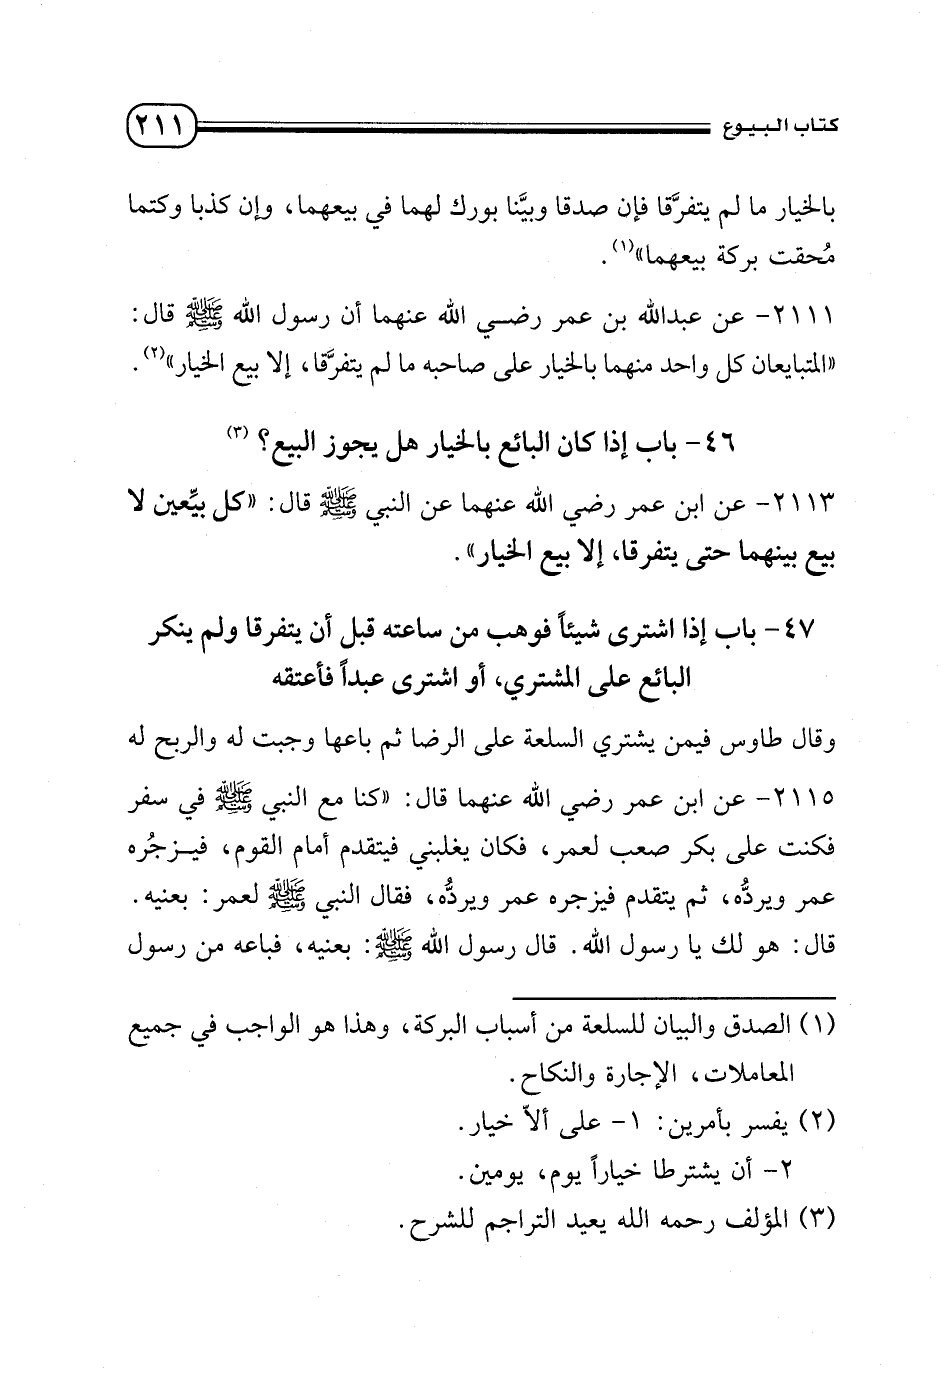 كتاب البيوع
٢١١
بالخيار ما لم يتفرَّقا فإن صدقا وبيَّنا بورك لهما في بيعهما، وإن كذبا وكتما
مُحقت بركة بيعهما»(١).
٢١١١- عن عبدالله بن عمر رضي الله عنهما أن رسول الله ﷺ قال:
«المتبايعان كل واحد منهما بالخيار على صاحبه ما لم يتفرَّقا، إلا بيع الخيار»(٢).
٤٦- باب إذا كان البائع بالخيار هل يجوز البيع؟ (٣)
٢١١٣- عن ابن عمر رضي الله عنهما عن النبي ﷺ قال: «كل بيِّعين لا
بيع بينهما حتى يتفرقا، إلا بيع الخيار».
٤٧- باب إذا اشترى شيئاً فوهب من ساعته قبل أن يتفرقا ولم ينكر
البائع على المشتري، أو اشترى عبداً فأعتقه
وقال طاوس فيمن يشتري السلعة على الرضا ثم باعها وجبت له والربح له
٢١١٥- عن ابن عمر رضي الله عنهما قال: «كنا مع النبي ﷺ في سفر
فكنت على بكر صعب لعمر، فكان يغلبني فيتقدم أمام القوم، فيـزجُره
عمر ويردُّه، ثم يتقدم فيزجره عمر ويردُّه، فقال النبي ﷺ لعمر: بعنيه.
قال: هو لك يا رسول الله. قال رسول الله ﷺ: بعنيه، فباعه من رسول
(١) الصدق والبيان للسلعة من أسباب البركة، وهذا هو الواجب في جميع
المعاملات، الإجارة والنكاح.
(٢) يفسر بأمرين: ١- على ألاّ خيار.
٢- أن يشترطا خياراً يوم، يومين.
(٣) المؤلف رحمه الله يعيد التراجم للشرح.